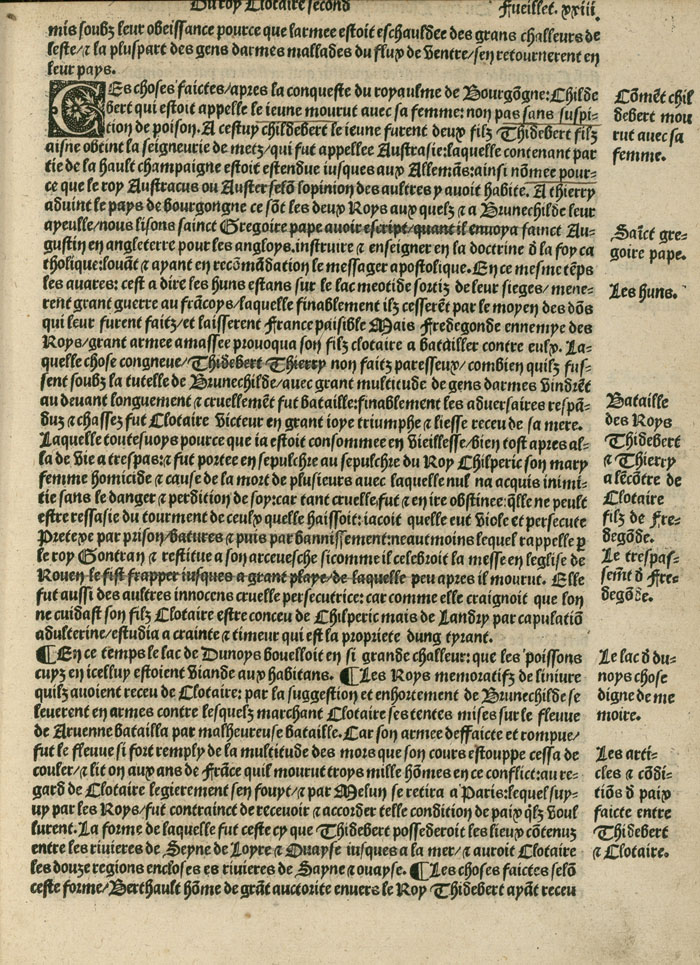 Du roy Clotaire second
Fueillet. xxiii.
mis soubz leur obeissance pource que larmee estoit eschauldee des grans challeurs de
leste/⁊ la pluspart des gens darmes mallades du flux de ventre/sen retournerent en
leur pays.
CEs choses faictes/apres la conqueste du royaulme de Bourgõgne:Childe
bert qui estoit appelle le ieune mourut avec sa femme: non pas sans suspi-
tion de poison. A cestuy childebert le ieune furent deux filz Thidebert filz
aisne obtint la seigneurie de metz/qui fut appellee Austrasie:laquelle contenant par
tie de la hault champaigne estoit estendue iusques aux Allemãs:ainsi nõmee pour-
ce que le roy Austracus ou Auster selõ lopinion des aultres y avoit habite. A thierry
aduint le pays de bourgongne ce sõt les deux Roys aux quelz ⁊ a Brunechilde leur
ayeulle/nous lisons sainct Gregoire pape avoir escript/quant il envoya sainct Au-
gustin en angleterre pour les angloys.instruire ⁊ enseigner en la doctrine d̄ la foy ca
tholique:louãt ⁊ ayant en recõmãdation le messager apostolique. En ce mesme tẽps
les auares: cest a dire les huns estans sur le lac meotide sortiz de leur sieges/ mene-
rent grant guerre au frãcoys/laquelle finablement ilz cesserẽt par le moyen des dõs
qui leur furent faitz/et laisserent France paisible Mais Fredegonde ennemye des
Roys/grant armee amassee prouoqua son filz clotaire a batailler contre eulx. La-
quelle chose congneue/Thidebert Thierry non faitz paresseux/combien quilz fus-
sent soubz la tutelle de Brunechilde/avec grant multitude de gens darmes vindrẽt
au devant longuement ⁊ cruellemẽt fut bataille:finablement les aduersaires respã-
duz ⁊ chassez fut Clotaire victeur en grant ioye triumphe ⁊ liesse receu de sa mere.
Laquelle toutesuoys pource que ia estoit consommee en vieillesse/bien tost apres al-
la de vie a trespas:⁊ fut portee en sepulchre au sepulchre du Roy Chilperic son mary
femme homicide ⁊ cause de la mort de plusieurs avec laquelle nul na acquis inimi-
tie sans le danger ⁊ perdition de soy:car tant cruelle.fut ⁊ en ire obstinee:q̃lle ne peult
estre ressasie du tourment de ceulx quelle haissoit:iacoit quelle eut viole et persecute
Pretexe par prison/batures ⁊ puis par bannissement:neautmoins lequel rappelle p̲
le roy Gontran ⁊ restitue a son arceuesche sicomme il celebroit la messe en leglise de
Rouen le fist frapper iusques a grant playe/de laquelle peu apres il mourut. Elle
fut aussi des aultres innocens cruelle persecutrice: car comme elle craignoit que lon
ne cuidast son filz Clotaire estre conceu de Chilperic mais de Landry par capulatiõ
adulterine/estudia a crainte ⁊ timeur qui est la propriete dung tyrant.
¶En ce temps le lac de Dunoys bouelloit en si grande challeur: que les poissons
cuyz en icelluy estoient viande aux habitans. ¶Les Roys memoratifz de liniure
quilz avoient receu de Clotaire: par la suggestion et enhortement de Brunechilde se
leuerent en armes contre lesquelz marchant Clotaire ses tentes mises sur le fleuue
de Aruenne batailla par malheureuse bataille. Car son armee deffaicte et rompue/
fut le fleuue si fort remply de la multitude des mors que son cours estouppe cessa de
couler/⁊ lit on aux ans de frãce quil mourut troys mille hõmes en ce conflict:au re-
gard de Clotaire legierement sen fouyt/⁊ par Melun se retira a Paris:lequel suy-
uy par les Roys/fut contrainct de receuoir ⁊ accorder telle condition de paix q̃lz voul
lurent. La forme de laquelle fut ceste cy que Thidebert possederoit les lieux cõtenuz
entre les rivieres de Seyne de Loyre ⁊ Ouayse iusques a la mer/⁊ auroit Clotaire
les douze regions encloses es rivieres de Sayne ⁊ ouayse. ¶Les choses faictes selõ
ceste forme/Berthault hõme de grãt auctorite envers le Roy Thidebert ayãt receu
Cõmẽt chil
debert mou
rut avec sa
femme.
Saĩct gre-
goire pape.
Les huns.
Bataille
des Roys
Thidebert
⁊ Thierry
a lẽcõtre de
Clotaire
filz de Fre-
degõde.
Le trespas-
semẽt d̄ Fre
degõde.
Le lac d̄ du-
noys chose
digne de me
moire.
Les arti-
cles ⁊ cõdi-
tiõs d̄ paix
faicte entre
Thidebert
⁊ Clotaire.